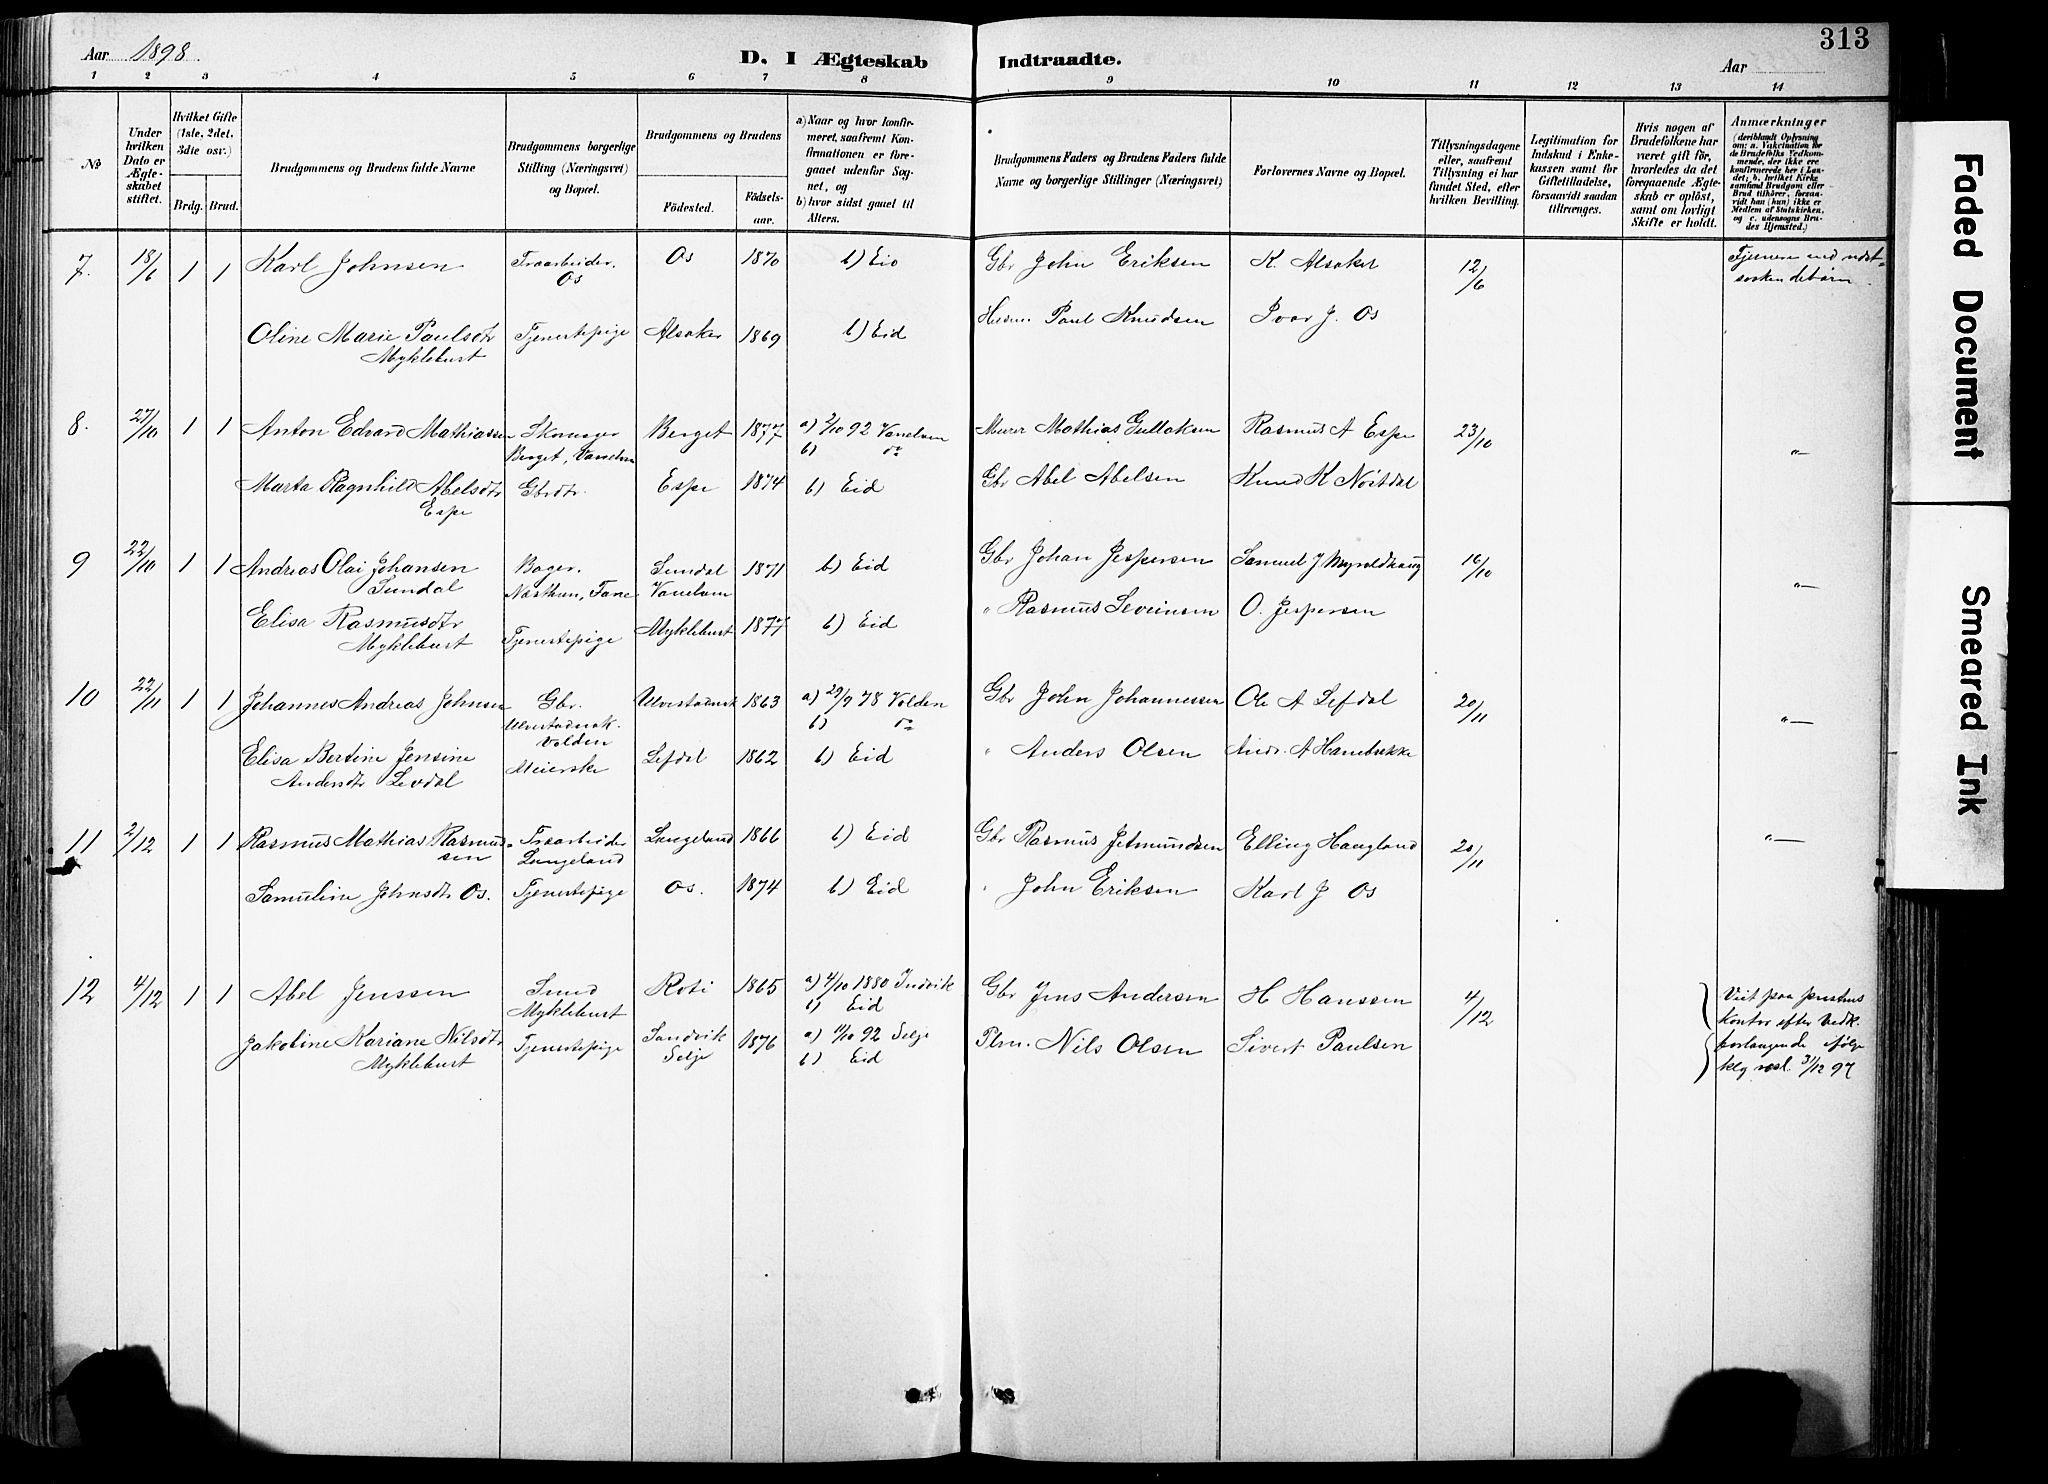 Aar 1898. D. I Ægteskab Indtraadte. Aar 313
1 2 3 4 5 6 7 8 9 10 11 12 13 14
№
Under hvilken Dato er Ægteskabet stiftet.
Hvilket Gifte (1ste, 2det, 3die osv.)
Brdg. Brud.
Brudgommens og Brudens fulde Navne
Brudgommens borgerlige Stilling (Næringsvei) og Bopæl.
Brudgommens og Brudens
Fødested. Fødselsaar.
a) Naar og hvor konfirmeret, saafremt Konfirmationen er foregaaet udenfor Sognet, og
b) hvor sidst gaaet til Alters.
Brudgommens Faders og Brudens Faders fulde Navne og borgerlige Stillinger (Næringsvei)
Forlovernes Navne og Bopæl.
Tillysningsdagene eller, saafremt Tillysning ei har fundet Sted, efter hvilken Bevilling.
Legitimation for Indskud i Enkekassen samt for Giftetilladelse, forsaavidt saadan tiltrænges.
Hvis nogen af Brudefolkene har været gift før, hvorledes da det foregaaende Ægteskab er opløst, samt om lovligt Skifte er holdt.
Anmærkninger (deriblandt Oplysning om: a. Vakcination for de Brudefolks Vedkommende, der ikke ere konfirmerede her i Landet; b. hvilket Kirkesamfund Brudgom eller Brud tilhører, forsaavidt han (hun) ikke er Medlem af Statskirken, og c. udensogns Brudes Hjemsted.)
7. 18/6 1 1 Karl Johnsen Træarbeider, Os 1870 b) Eid Gbr John Eriksen K. Alsaker 12/6
Os
Oline Marie Paulsdtr Tjenestepige Alsaker 1869 b) Eid Husm. Paul Knudsen Ivar J. Os
Myklebust
8. 27/10 1 1 Anton Edvard Mathiassen Skomager Berget 1877 a) 2/10 92 Vanelven Murer Mathias Gullaksen Rasmus A Espe 23/10 "
Berget, Vanelven b) do
Marta Ragnhild Abelsdtr Gbrdtr. Espe 1874 b) Eid Gbr Abel Abelsen Knud K Nøstdal
Espe
9 22/10 1 1 Andreas Olai Johansen Bager. Sundal 1871 b) Eid Gbr Johan Jespersen Samuel J Myroldhaug 16/10 "
Sundal Næsthun, Fane Vanelven
Elisa Rasmusdtr Tjenestepige Myklebust 1877 b) Eid " Rasmus Severinsen O. Jespersen
Myklebust
10 22/11 1 1 Johannes Andreas Johnsen Gbr. Ulvestadbak 1863 a) 29/9 78 Volden Gbr John Johannessen Ole A Lefdal 20/11 "
Ulvestadbak. b) do
Volden
Elisa Bertine Jensine Meierske Lefdal 1862 b) Eid " Anders Olsen Andr. A Hanebrekke
Andersdtr Levdal
11 2/12 1 1 Rasmus Mathias Rasmussen Træarbeider Langeland 1866 b) Eid Gbr Rasmus Jetmundsen Elling Haugland 20/11 "
Langeland
Samuline Johnsdtr Os. Tjenestepige Os. 1874 b) Eid " John Eriksen Karl J Os
12 4/12 1 1 Abel Jenssen Smed Roti 1865 a) 4/10 1880 Indvik Gbr Jens Andersen H Hanssen 4/12 Viet paa prestens
Myklebust b) Eid kontor efter Vedk.
Jakobine Kariane Nilsdtr Tjenestepige Sandvik 1876 a) 11/10 92 Selje Plm. Nils Olsen Sivert Paulsen forlangende ifølge
Myklebust Selje b) Eid
Faded Document
Smeared Ink